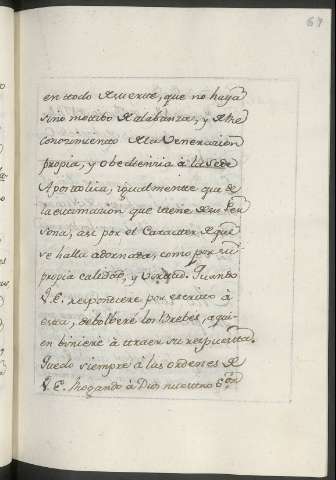 67
en todo de suerte, que no haya
sino motibo de alabanza, y de re
conocimiento de la Veneracion
propia, y obediencia à la Sede
Apostolica, igualmente que de
la estimacion que tiene de su Per
sona, asi por el Caracter de que
se halla adornada, como por su
propia calidad, y Virtud. Quando
V. E. respondiere por escrito à
esta, debolberé los Brebes, a qui-
en biniere à traer su respuesta.
Quedo siempre à las ordenes de
V. E. Rogando à Dios nuestro S.or